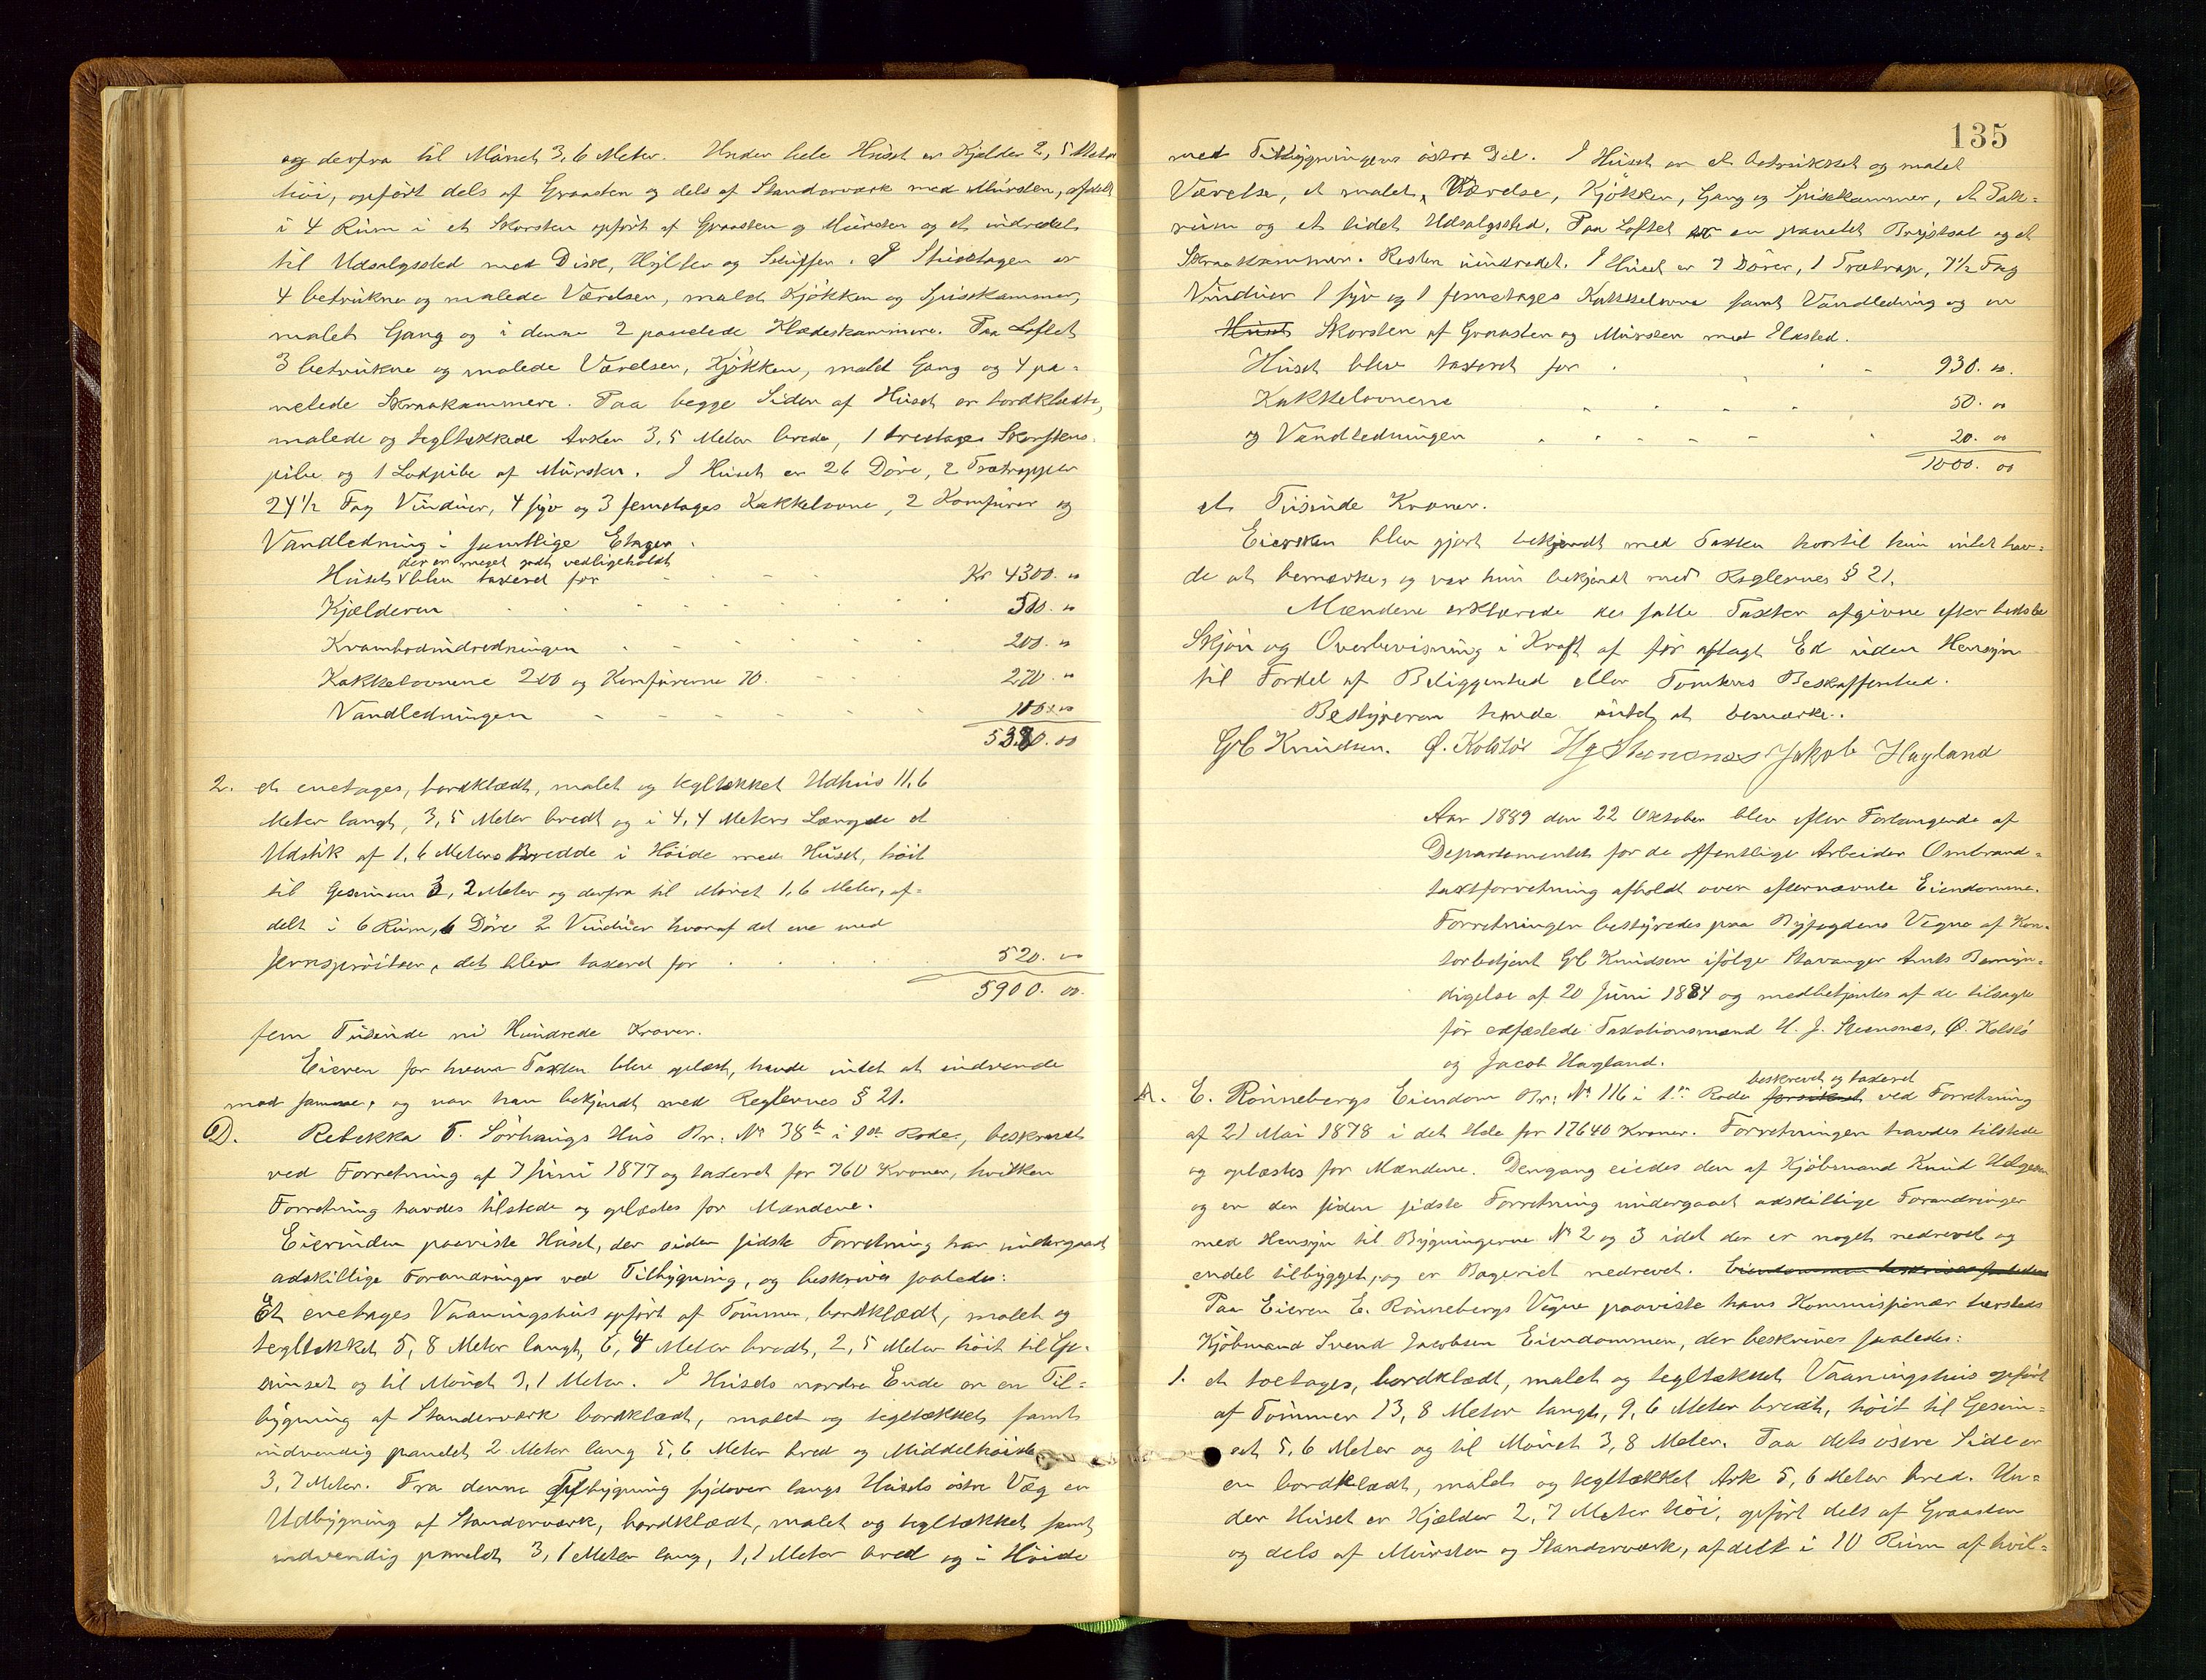 og derfra til Mönet 3,6 Meter. Under hele Huset er Kjelder 2,5 Meter
höi, opfört dels af Graasten og dels af Standerværk med Mursten, afdelt
i 4 Rum i et Skorsten opfört af Graasten og Mursten og et indredet
til Udsalgssted med Disk, Hylder og Skuffer. I Stuestagen er
4 betrukne og malede Værelser, malet Kjökken og Spisekammer,
malet Gang og i denne 2 panelede Klædeskammere. Paa Loftet
3 betrukne og malede Værelser, Kjökken, malet Gang og 4 pa=
nelede Skraakammere. Paa begge Sider af Huset er bordklædte,
malede og tegltækkede Arker 3,5 Meter brede, 1 trestages Skorstens-
pibe og 1 Lodpibe af Mursten. I Huset er 26 Döre, 2 Trætrapper
24½ Fag Vinduer, 4 syv og 3 femetages Kakkelovne, 2 Komfurer og
Vandledning i samtlige Etager.
der er meget godt vedligeholdt
Huset blev taxeret for Kr 4300. 00
Kjælderen 500. 00
Krambodindredningen 200. 00
Kakkelovnene 200 og Komfurerne 70. 270. 00
Vandledningen 110. 00
5380. 00
2. et enetages, bordklædt, malet og tegltækket Udhus 11,6
Meter langt, 3,5 Meter bredt og i 4,4 Meters Længde et
Udstik af 1,6 Meters Bredde i Höide med Huset, höit
til Gesimsen 3,2 Meter og derfra til Mönet 1,6 Meter, af=
delt i 6 Rum, 6 Döre 2 Vinduer hvoraf det ene med
Jernsprötser, det blev taxeret for 520. 00
5900. 00.
fem Tusinde ni Hundrede Kroner.
Eieren for hvem Taxten blev oplæst, havde intet at indvende
mod samme, og var han bekjendt med Reglernes § 21.
D. Rebekka T. Sörhaugs Hus Br. No 38b i 9de Rode, beskrevet
ved Forretning af 7 Juni 1877 og taxeret for 760 Kroner, hvilken
Forretning havdes tilstede og oplæstes for Mændene.
Eierinden paaviste Huset, der siden sidste Forretning har undergaaet
adskillige Forandringer ved Tilbygning, og beskrives saaledes:
Et enetages Vaaningshus opfört af Tömmer, bordklædt, malet og
tegltækket 5,8 Meter langt, 6,4 Meter bredt, 2,5 Meter höit til Ge-
simset og til Mönet 3,1 Meter. I Husets nordre Ende er en Til=
bygning af Standerværk bordklædt, malet og tegltækket samt
indvendig panelet 2 Meter lang 5,6 Meter bred og Middelhöide
3,7 Meter. Fra denne Tilbygning sydover langs Husets östre Væg en
Udbygning af Standerværk, bordklædt, malet og tegltækket samt
indvendig panelet 3,1 Meter lang, 1,1 Meter bred og i Höide
135
med Tilbygningens östre Del. I Huset er et betrukket og malet
Værelse, et malet, Værelse, Kjökken, Gang og Spisekammer, et Pak=
rum og et lidet Udsalgssted. Paa Loftet er en panelet Brystsal og et
Skraakammer. Resten uindredet. I Huset er 7 Dörer, 1 Trætrap, 7½ Fag
Vinduer 1 syv og 1 femetages Kakkelovne samt Vandledning og en
Huset Skorsten af Graasten og Mursten med Ildsted.
Huset blev taxeret for 930. 00.
Kakkelovnene 50. 00
og Vandledningen 20. 00
1000. 00
et Tusinde Kroner.
Eiersken blev gjort bekjendt med Taxten hvortil hun intet hav=
de at bemærke, og var hun bekjendt med Reglernes § 21.
Mændene erklærede des falte Taxter afgivne efter bedste
Skjön og Overbevisning i Kraft af för aflagt Ed uden Hensyn
til Fordel af Beliggenhed eller Tomtens Beskaffenhed.
Bestyreren havde intet at bemærke.
GC Knudsen. Ø. Kolstö HJ Steensnæs Jakob Hagland
Aar 1889 den 22 Oktober blev efter Forlangende af
Departementet for de offentlige Arbeider Ombrand=
taxtforretning afholdt over efternævnte Eiendomme.
Forretningen bestyredes paa Byfogdens Vegne af Kon-
torbetjent GC Knudsen ifölge Stavanger Amts Bemyn=
digelse af 20 Juni 1884 og medbetjentes af de tilsagte
för edfæstede Taxationsmænd H. J. Steensnes, Ø. Kolstö
og Jacob Hagland.
beskrevet og taxeret
A. E. Rönnebergs Eiendom Br: No 116 i 1ste Rode forsikret ved Forretning
af 21 Mai 1878 i det Hele for 17640 Kroner. Forretningen havdes tilstede
og oplæstes for Mændene. Dengang eiedes den af Kjöbmand Knud Helgesen
og er den siden sidste Forretning undergaaet adskillige Forandringer
med Hensyn til Bygningerne No 2 og 3 idet der er noget nedrevet og
endel tilbygget, og er Bageriet nedrevet. Eiendommen beskrives saaledes
Paa Eieren E. Rönnebergs Vegne paaviste hans Kommissionær hersteds
Kjöbmand Svend Jacobsen Eiendommen, der beskrives saaledes:
1. et toetages, bordklædt, malet og tegltækket Vaaningshus opfört
af Tömmer 13,8 Meter langt, 9,6 Meter bredt, höit til Gesim=
set 5,6 Meter og til Mönet 3,8 Meter. Paa dets östre Side er
en bordklædt, malet og tegltækket Ark 5,6 Meter bred. Un=
der Huset er Kjælder 2,7 Meter höi, opfört dels af Graasten
og dels af Mursten og Standerværk, afdelt i 10 Rum af hvil=